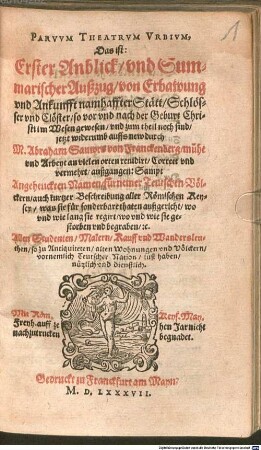 1
PARVVM THEATRVM VRBIVM,
Das ist:
Erster Anblick/ vnd Sum-
marischer Außzug/ von Erbawung
vnd Ankunfft namhaffter Stätt/ Schlös-
ser vnd Clöster/ so vor vnd nach der Geburt Chri-
sti im Wesen gewesen/ vnd zum theil noch sind/
jetzt widerumb auffs new durch
M. Abraham Saurn von Franckenberg/ mühe
vnd Arbeyt an vielen orten renidirt/ Correct vnd
vermehrt/ außgangen: Sampt
Angehenckten Namen fürnemer Teutschen Völ-
ckern/ auch kurtzer Beschreibung aller Römischen Key-
sey/ was sie für sonderbare thaten außgericht/ wo
vnd wie lang sie regirt/ wo vnd wie sie ge-
storben vnd begraben/ ꝛc.
Allen Studenten/ Malern/ Kauff vnd Wandersleu-
then/ so zu Antiquiteten/ alten Wohnungen vnd Völckern/
vornemlich Teutscher Nation/ lust haben/
nützlich vnd dienstlich.
Mit Röm. Keys. May.
Freyh. auff 7e hen Jar nicht
nachzutrucken begnadet.
Gedruckt zu Franckfurt am Mayn:
M. D. LXXXVII.